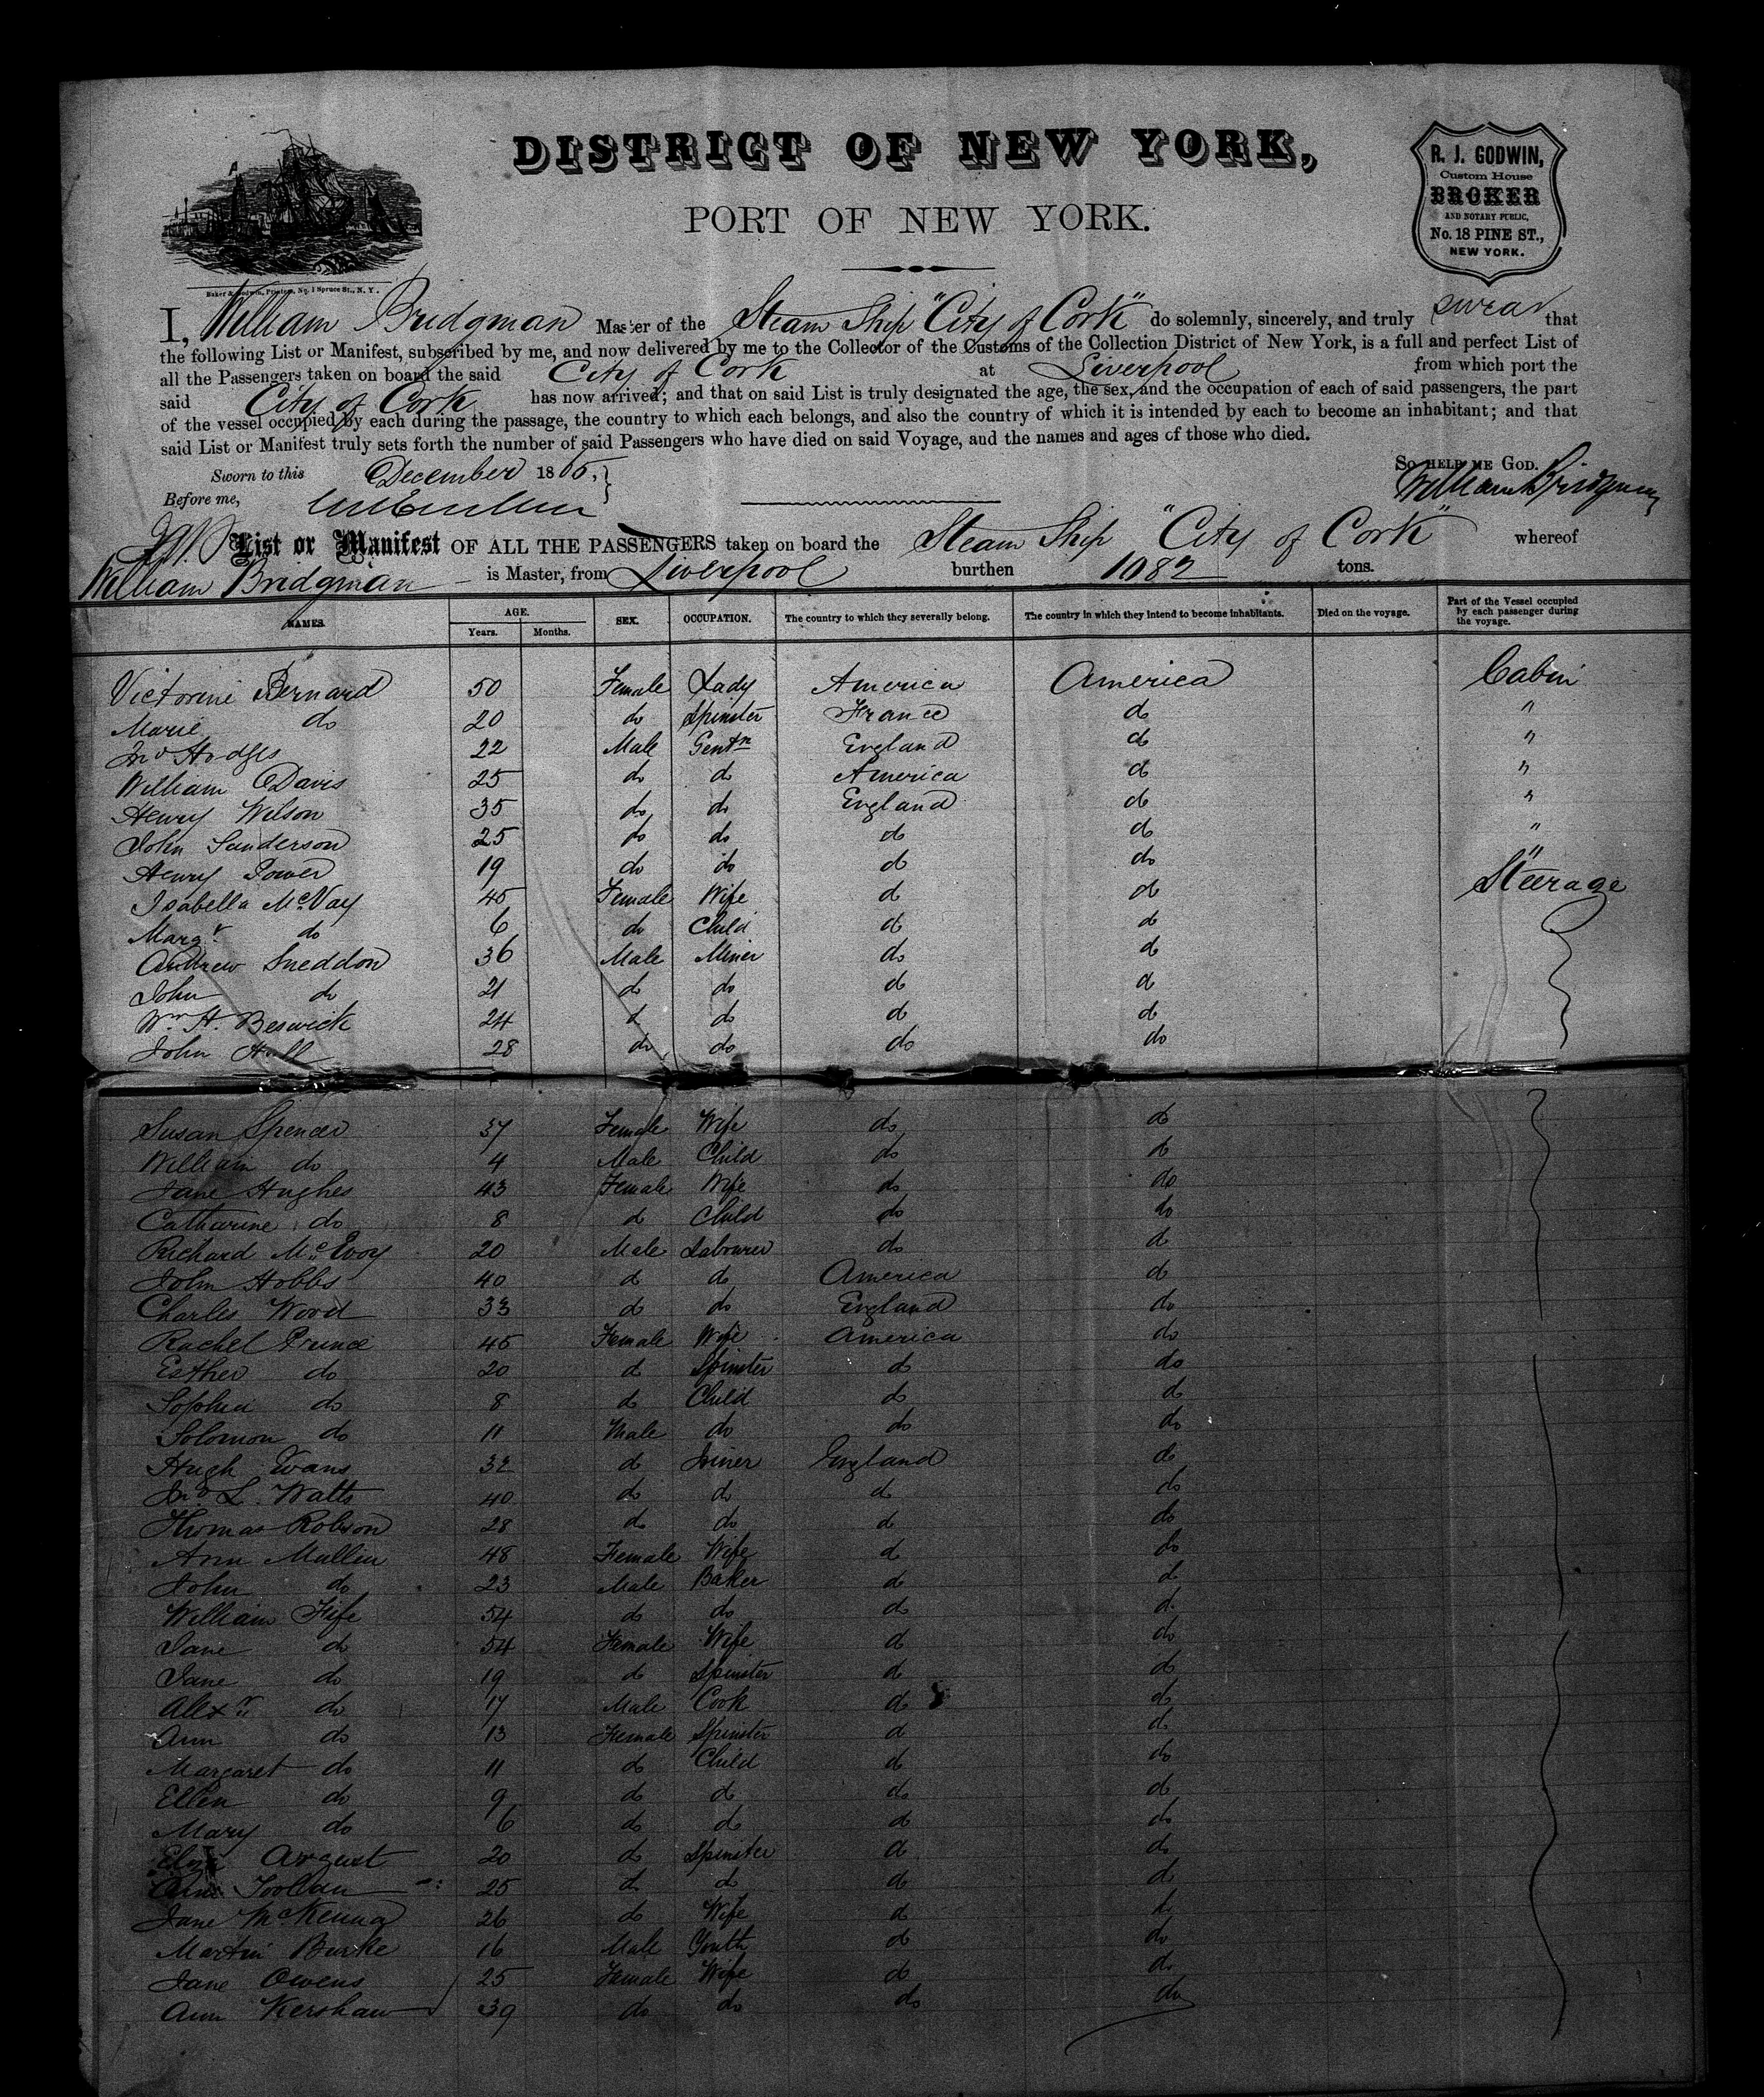 DISTRICT OF NEW YORK,
PORT OF NEW YORK.
R. J. GODWIN,
Custom House
BROKER
AND NOTARY PUBLIC,
No. 18 PINE ST.,
NEW YORK.
Baker & Godwin, Printers, No. 1 Spruce St., N. Y.
I, William Bridgman Master of the Steam Ship "City of Cork" do solemnly, sincerely, and truly swear that
the following List or Manifest, subscribed by me, and now delivered by me to the Collector of the Customs of the Collection District of New York, is a full and perfect List of
all the Passengers taken on board the said City of Cork at Liverpool from which port the
said City of Cork has now arrived; and that on said List is truly designated the age, the sex, and the occupation of each of said passengers, the part
of the vessel occupied by each during the passage, the country to which each belongs, and also the country of which it is intended by each to become an inhabitant; and that
said List or Manifest truly sets forth the number of said Passengers who have died on said Voyage, and the names and ages of those who died.
Sworn to this December 1865, So help me God.
Before me, William Bridgman
List or Manifest OF ALL THE PASSENGERS taken on board the Steam Ship "City of Cork" whereof
William Bridgman is Master, from Liverpool burthen 1082 tons.
NAMES. AGE. Years. Months. SEX. OCCUPATION. The country to which they severally belong. The country in which they intend to become inhabitants. Died on the voyage. Part of the Vessel occupied by each passenger during the voyage.
Victorine Bernard 50 Female Lady America America Cabin
Marie do 20 do Spinster France do "
Jno Hodges 22 Male Gentn England do "
William Davis 25 do do America do "
Henry Wilson 35 do do England do "
John Sanderson 25 do do do do "
Henry Power 19 do do do do "
Isabella McVay 45 Female Wife do do Steerage
Margt do 6 do Child do do
Andrew Sneddon 36 Male Miner do do
John do 21 do do do do
Wm H. Beswick 24 do do do do
John Hall 28 do do do do
Susan Spencer 37 Female Wife do do
William do 4 Male Child do do
Jane Hughes 43 Female Wife do do
Catharine do 8 do Child do do
Richard McEvoy 20 Male Labourer do do
John Hobbs 40 do do America do
Charles Wood 33 do do England do
Rachel Prince 45 Female Wife America do
Esther do 20 do Spinster do do
Sophia do 8 do Child do do
Solomon do 11 Male do do do
Hugh Evans 32 do Joiner England do
Jno L. Watts 40 do do do do
Thomas Robson 28 do do do do
Ann Mullin 48 Female Wife do do
John do 23 Male Baker do do
William Fife 54 do do do do
Jane do 54 Female Wife do do
Jane do 19 do Spinster do do
Alexr do 17 Male Cook do do
Ann do 13 Female Spinster do do
Margaret do 11 do Child do do
Ellen do 9 do do do do
Mary do 6 do do do do
August 20 do Spinster do do
Ann 25 do do do do
Jane McKenna 26 do Wife do do
Martin Burke 16 Male Youth do do
Jane Owens 25 Female Wife do do
Ann Kershaw 39 do do do do